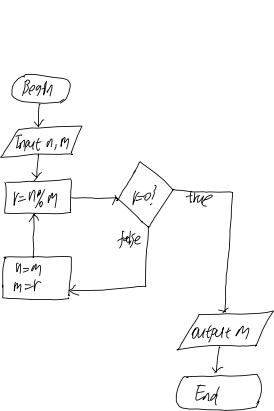 Begin
Input n, m
r=n%m
r=0?
true
false
n=m
m=r
output m
End